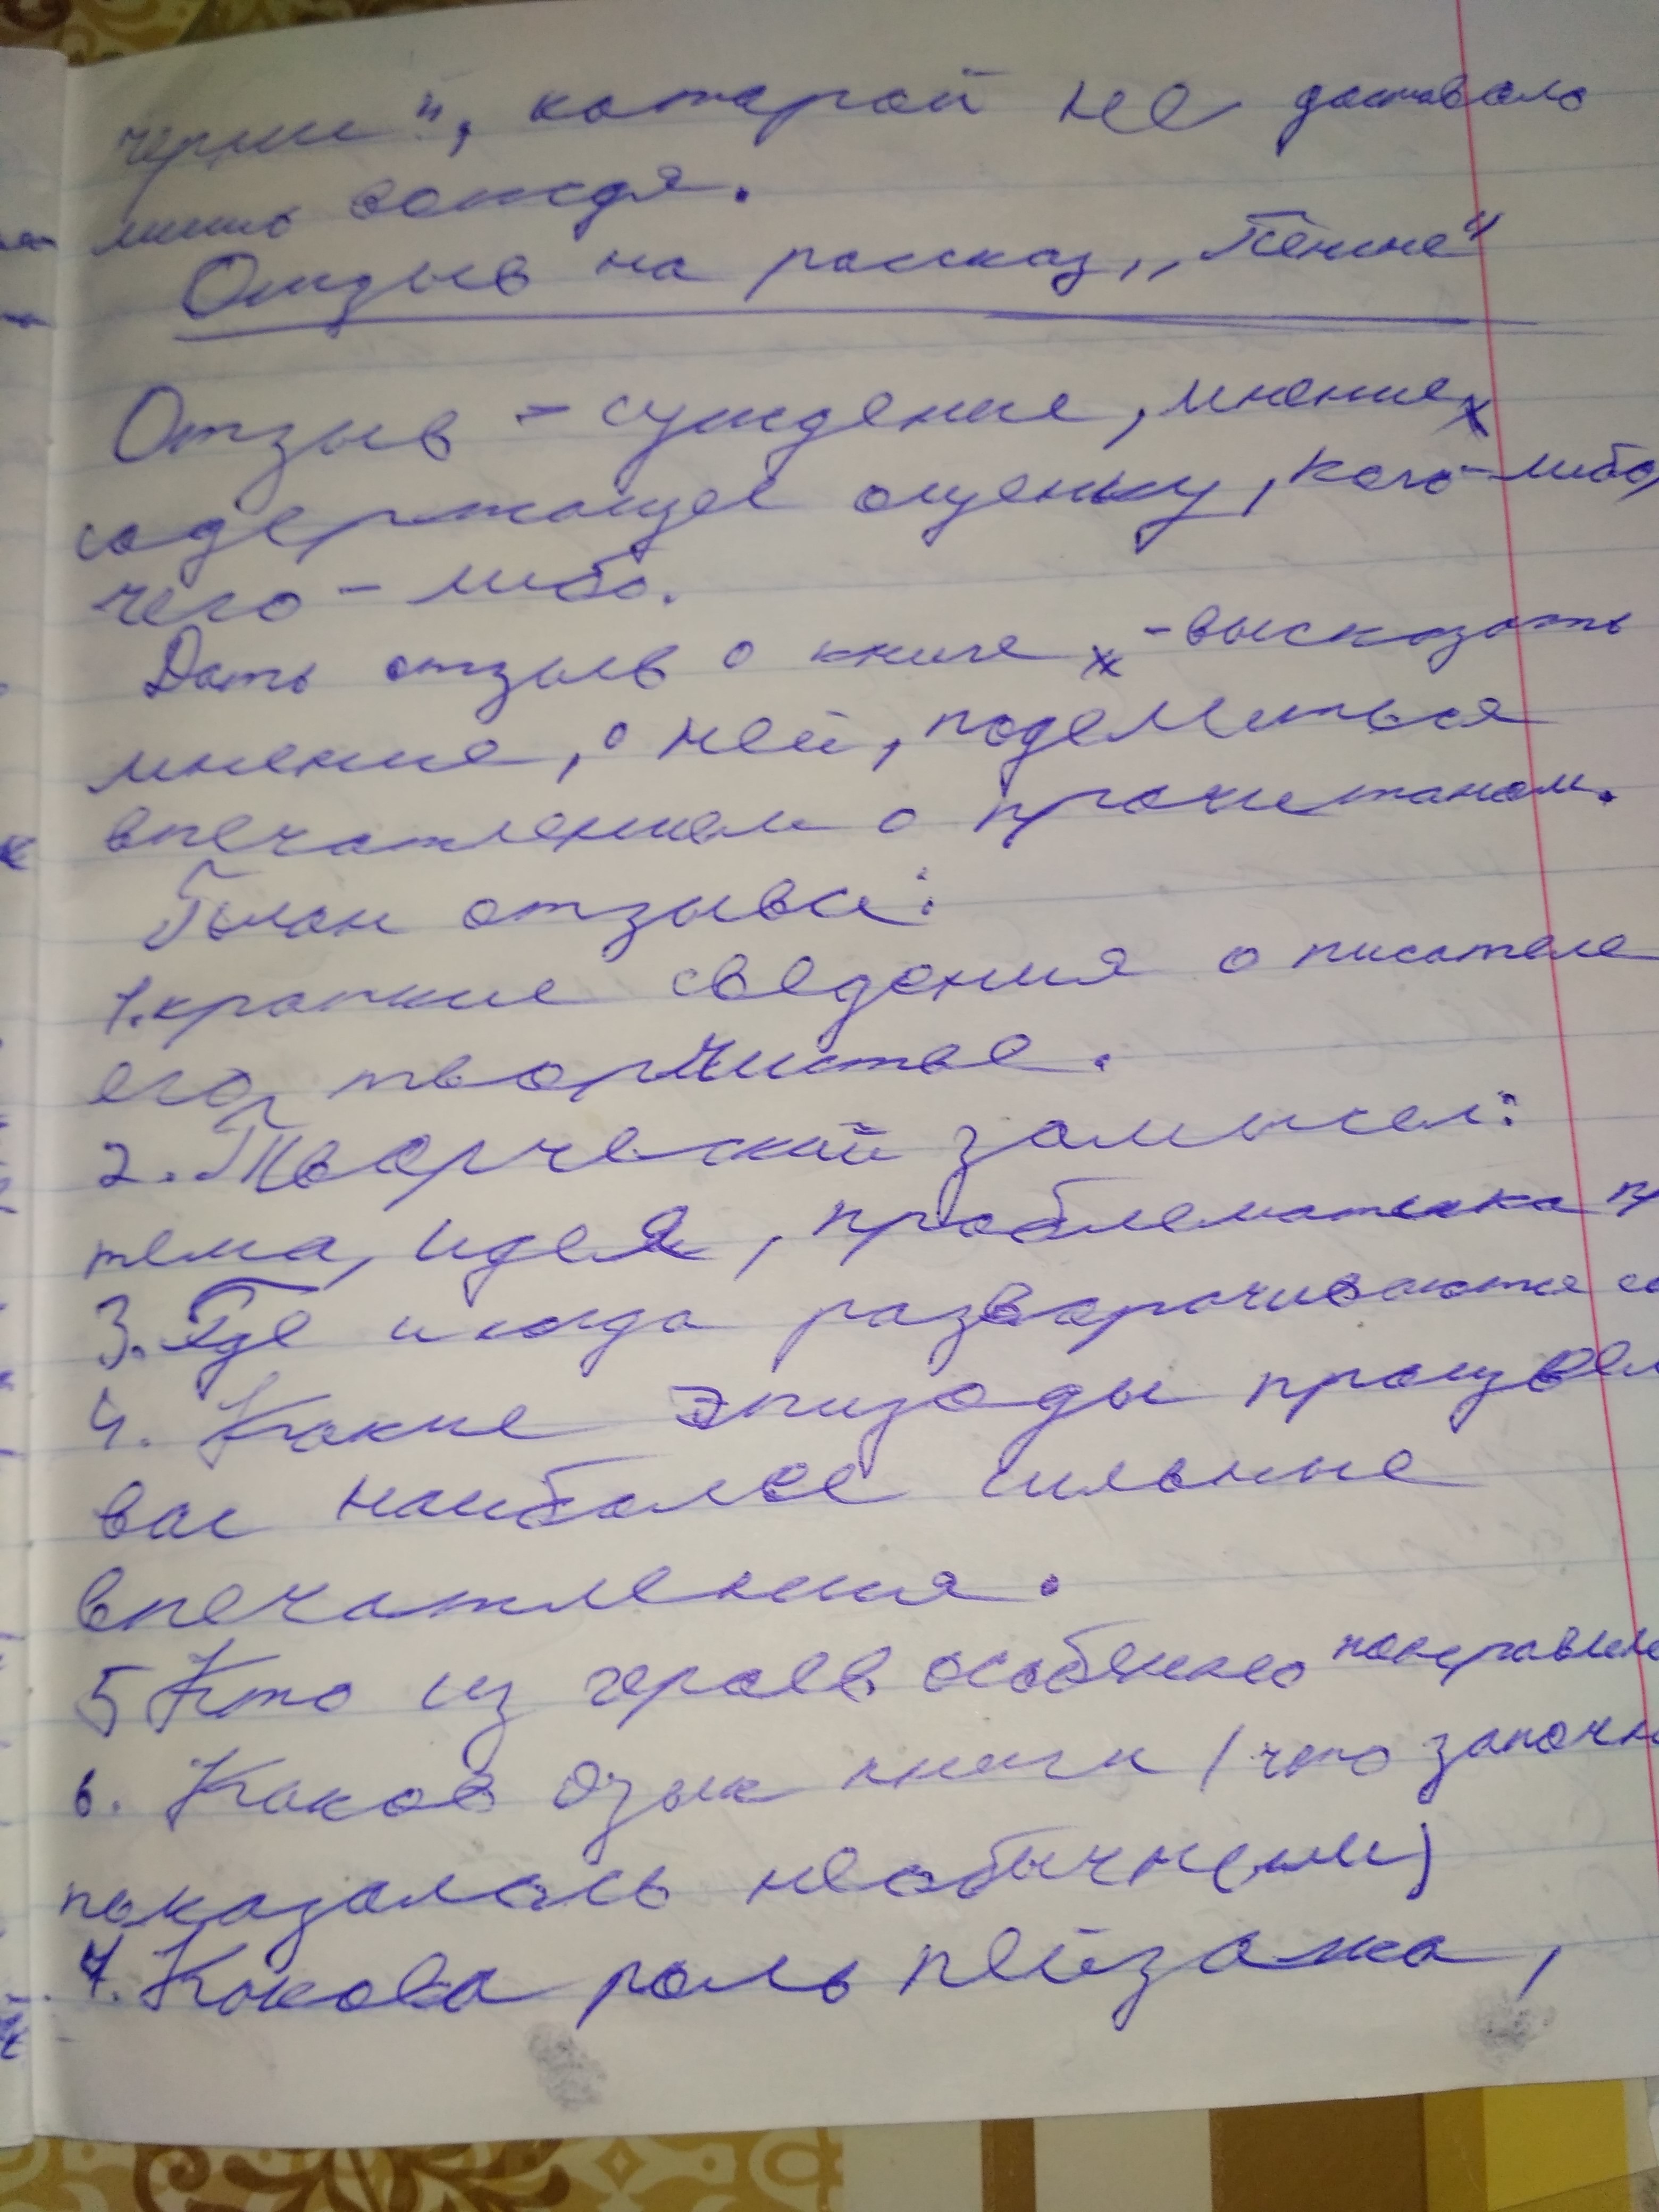 черни", которой не доставало
лишь вождя.
Отзыв на рассказ „Пенсне"
Отзыв - суждение, мнение,
содержащее оценку, кого-либо,
чего-либо.
Дать отзыв о книге - высказать
мнение, о ней, поделиться
впечатлением о прочитаном.
План отзыва:
1. краткие сведения о писателе
его творчистве.
2. Творческий замысел:
тема, идея, проблематика пр
3. Где и когда разворачиваются со
4. Какие эпизоды произвел
вас наиболее сильные
впечатления.
5 Кто из героев особенно понравился
6. Каков язык книги (что запомн
показалось необычным)
7. Какова роль пейзажа,